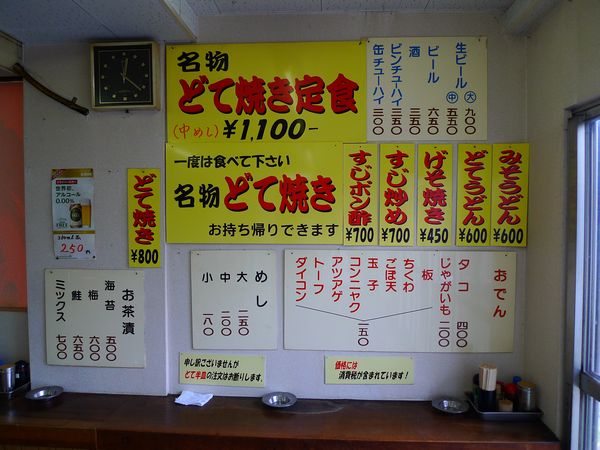 名物
どて焼き定食
(中めし) ¥1,100-
生ビール 大 九〇〇
中 五五〇
ビール 六五〇
酒 三五〇
ビンチューハイ 三五〇
缶チューハイ 三〇〇
一度は食べて下さい
名物 どて焼き
お持ち帰りできます
すじポン酢 ¥700
すじ炒め ¥700
げそ焼き ¥450
どてうどん ¥600
みそうどん ¥600
どて焼き ¥800
世界初、
アルコール
0.00%
250円
お茶漬
海苔 五〇〇
梅 六〇〇
鮭 六五〇
ミックス 七〇〇
めし
大 二五〇
中 二〇〇
小 一八〇
おでん
タコ 四〇〇
じゃがいも 二〇〇
板
ちくわ
ごぼ天
玉子
コンニャク
アツアゲ
トーフ
ダイコン
一五〇
申し訳ございませんが
どて半皿の注文はお断りします。
価格には
消費税が含まれています!